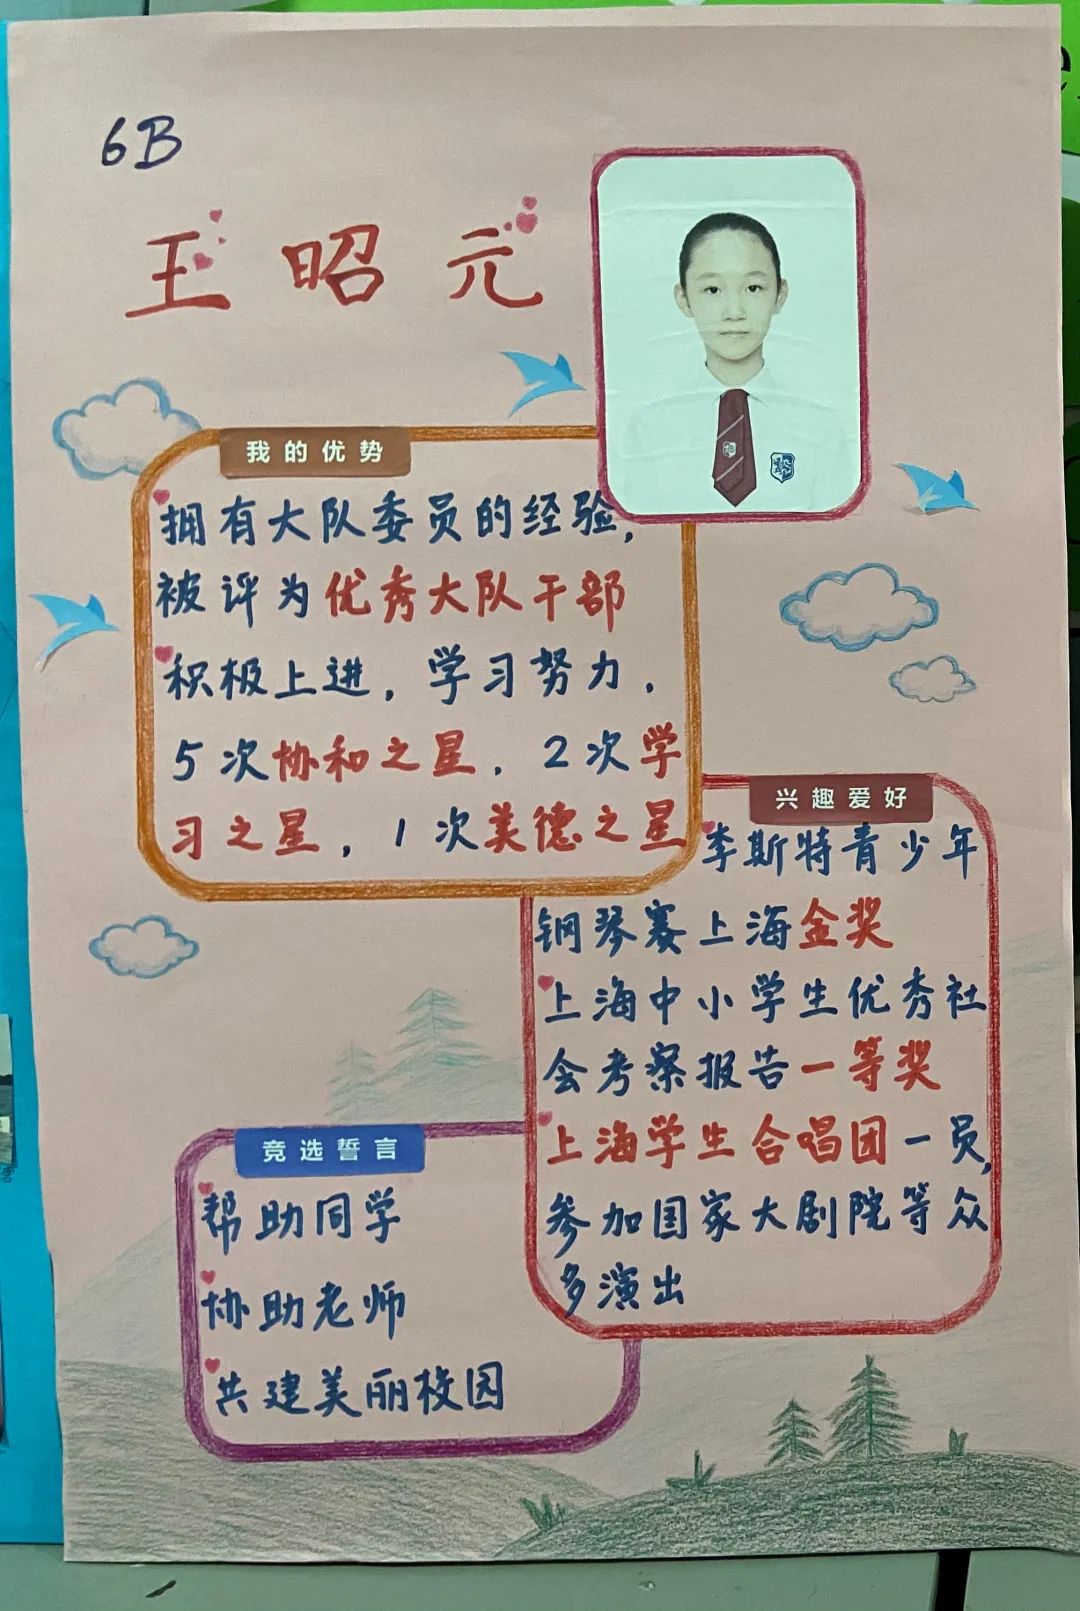 6B
王昭元
我的优势
拥有大队委员的经验,
被评为优秀大队干部
积极上进，学习努力，
5次协和之星，2次学
习之星，1次美德之星
兴趣爱好
李斯特青少年
钢琴赛上海金奖
上海中小学生优秀社
会考察报告一等奖
上海学生合唱团一员,
参加国家大剧院等众
多演出
竞选誓言
帮助同学
协助老师
共建美丽校园